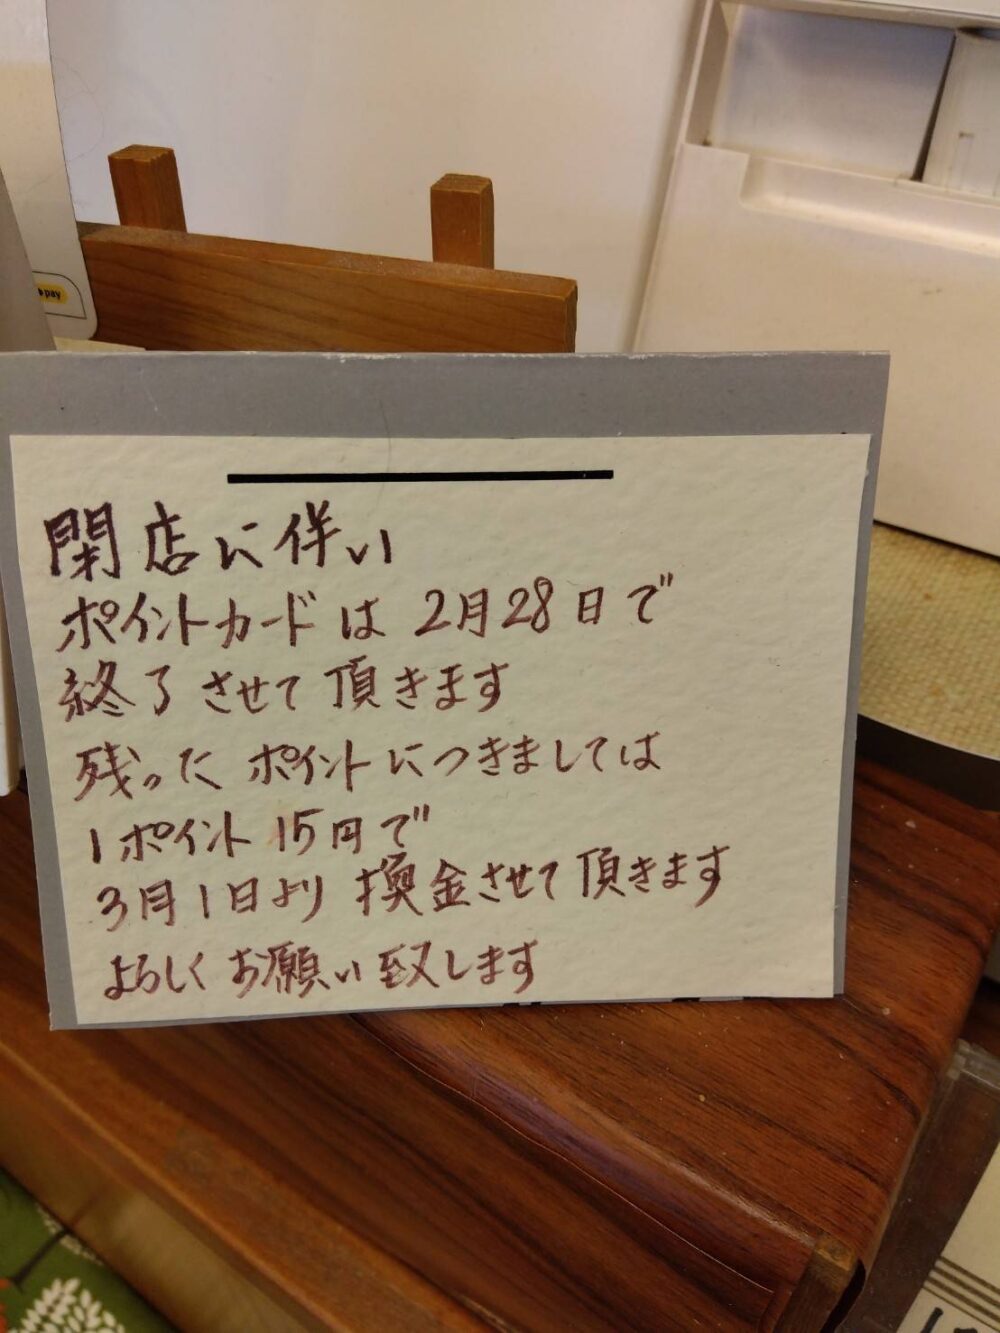 pay
閉店に伴い
ポイントカードは2月28日で
終了させて頂きます
残ったポイントにつきましては
1ポイント15円で
3月1日より換金させて頂きます
よろしくお願い致します